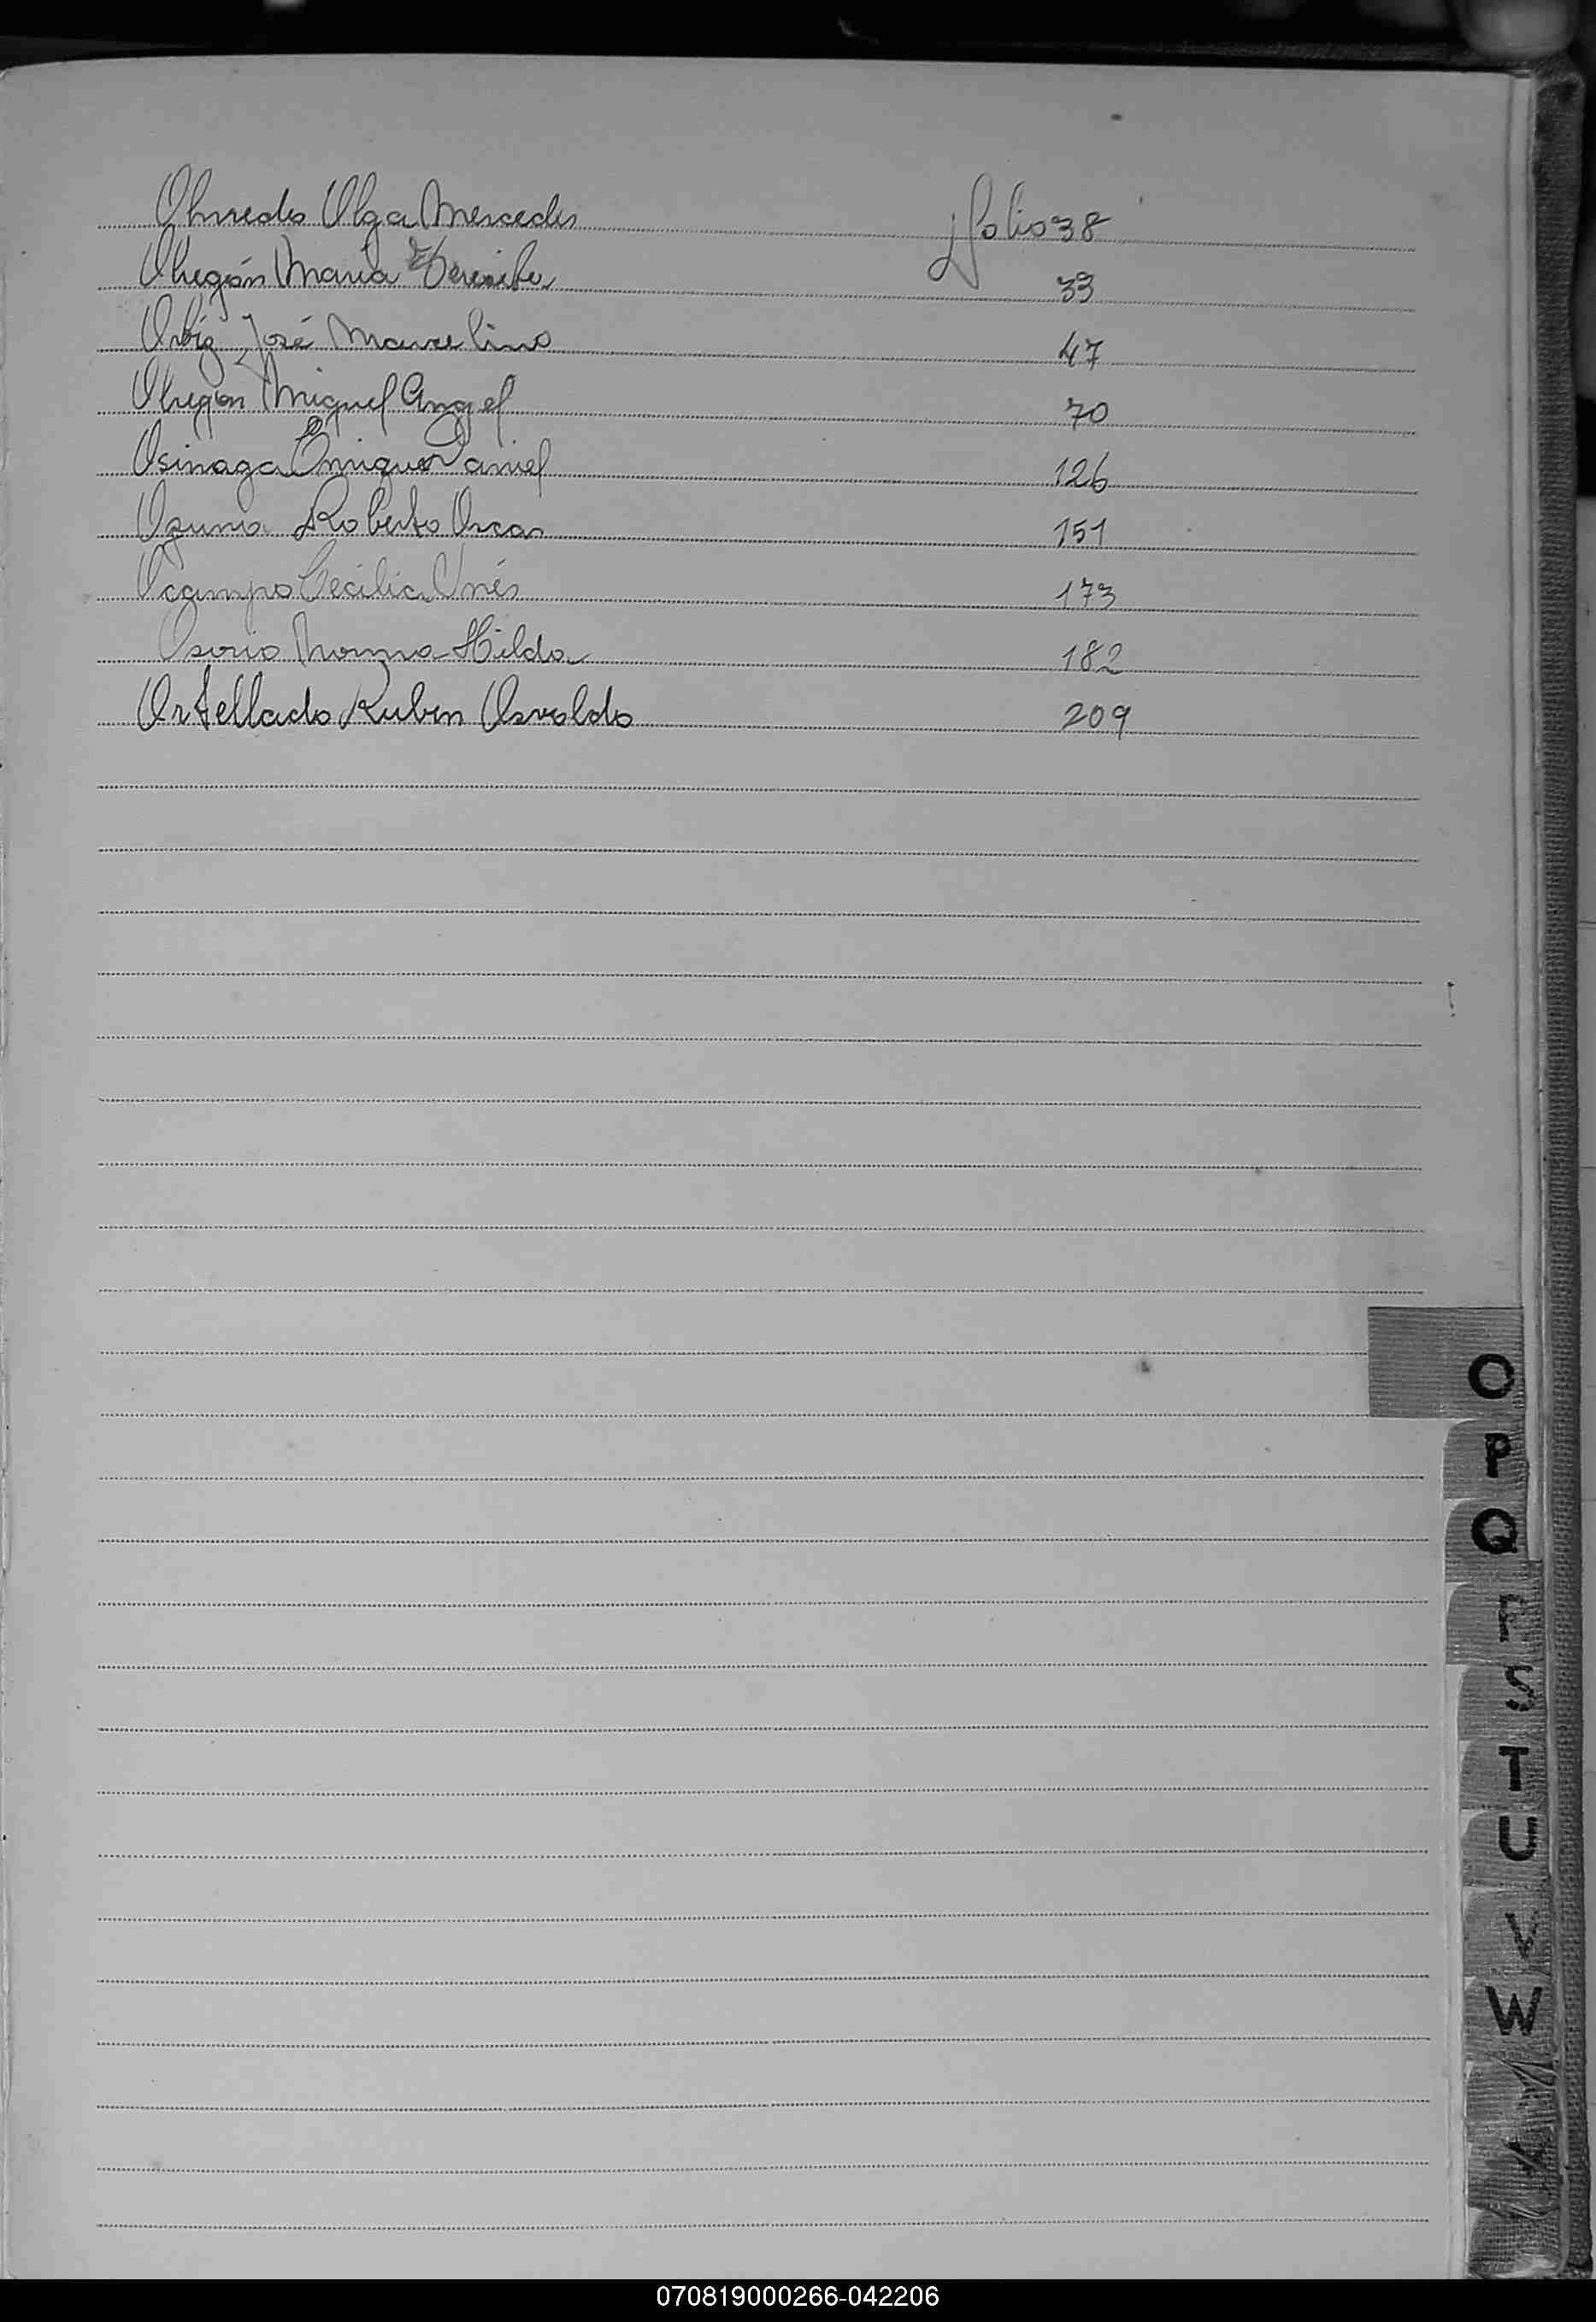 Olmedo Olga Mercedes folio 38
Obregón María 33
Ortiz José Marcelino 47
Obregón Miguel Angel 70
Osinaga Enrique Daniel 126
Ozuna Roberto Oscar 151
Ocampo Cecilia Inés 173
Osorio Norma Hilda 182
Ortellado Ruben Osvaldo 209
O
P
Q
R
S
T
U
V
W
070819000266-042206